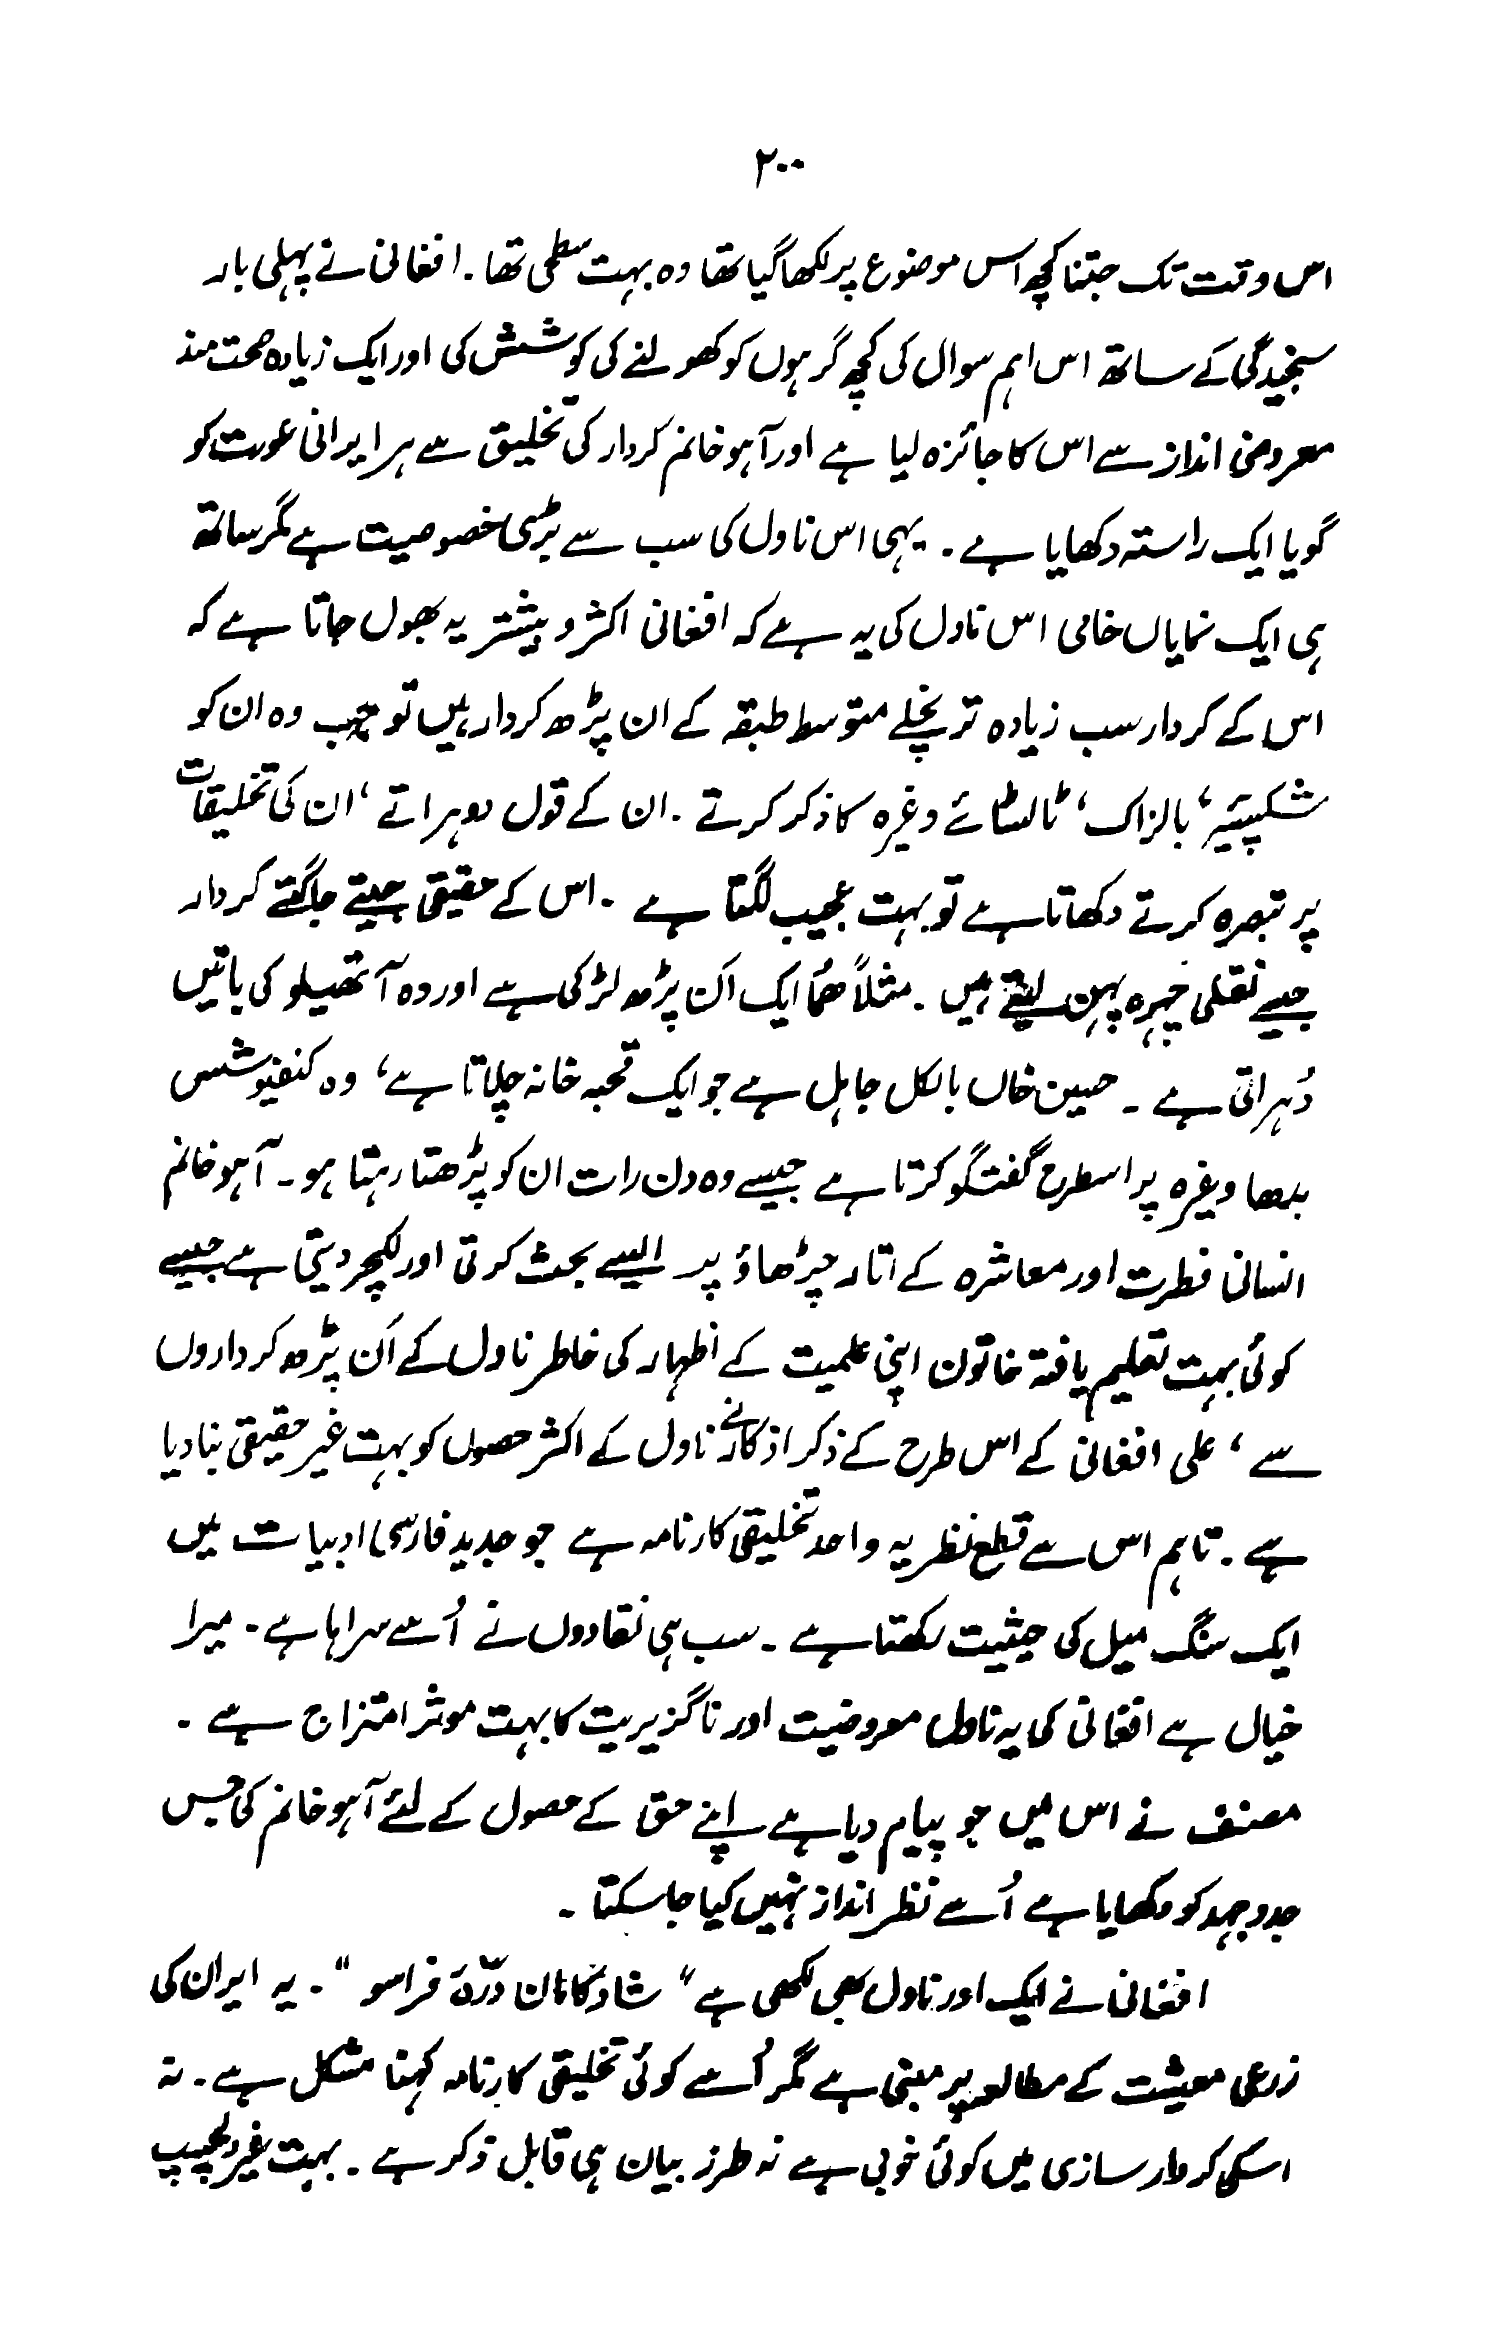 ۲۰۰
اس وقت تک جتنا کچھ اس موضوع پر لکھا گیا تھا وہ بہت سطحی تھا ۔ افغانی نے پہلی بار
سنجیدگی کے ساتھ اس اہم سوال کی کچھ گرہوں کو کھولنے کی کوشش کی اور ایک زیادہ صحت مند
معروضی انداز سے اس کا جائزہ لیا ہے اور آہو خانم کردار کی تخلیق سے ہر ایرانی عورت کو
گویا ایک راستہ دکھایا ہے ۔ یہی اس ناول کی سب سے بڑی خصوصیت ہے مگر ساتھ
ہی ایک نمایاں خامی اس ناول کی یہ ہے کہ افغانی اکثر و بیشتر یہ بھول جاتا ہے کہ
اس کے کردار سب زیادہ تر نچلے متوسط طبقہ کے ان پڑھ کردار ہیں تو جب وہ ان کو
شکسپئیر، بالزاک، ٹالسٹائے وغیرہ کا ذکر کرتے ۔ ان کے قول دوہراتے، ان کی تخلیقات
پر تبصرہ کرتے دکھاتا ہے تو بہت عجیب لگتا ہے ۔ اس کے حقیقی جیتے جاگتے کردار
جیسے نقلی چہرہ پہن لیتے ہیں ۔ مثلاً ھُما ایک اَن پڑھ لڑکی ہے اور وہ آتھیلو کی باتیں
دُہراتی ہے ۔ حسین خاں بالکل جاہل ہے جو ایک قحبہ خانہ چلاتا ہے، وہ کنفیوشس
بدھا وغیرہ پر اسطرح گفتگو کرتا ہے جیسے وہ دن رات ان کو پڑھتا رہتا ہو ۔ آہو خانم
انسانی فطرت اور معاشرہ کے اتار چڑھاؤ پر ایسے بحث کرتی اور لکچر دیتی ہے جیسے
کوئی بہت تعلیم یافتہ خاتون اپنی علمیت کے اظہار کی خاطر ناول کے اَن پڑھ کرداروں
سے، علی افغانی کے اس طرح کے ذکر اذکار نے ناول کے اکثر حصوں کو بہت غیر حقیقی بنا دیا
ہے ۔ تاہم اس سے قطع نظر یہ واحد تخلیقی کارنامہ ہے جو جدید فارسی ادبیات میں
ایک سنگ میل کی حیثیت رکھتا ہے ۔ سب ہی نقادوں نے اُسے سراہا ہے ۔ میرا
خیال ہے افغانی کی یہ ناول معروضیت اور ناگزیریت کا بہت موثر امتزاج ہے ۔
مصنف نے اس میں جو پیام دیا ہے اپنے حق کے حصول کے لئے آہو خانم کی جس
جدوجہد کو دکھایا ہے اُسے نظر انداز نہیں کیا جا سکتا ۔
افغانی نے ایک اور ناول بھی لکھی ہے " شادکامان درّۂ قراسو " ۔ یہ ایران کی
زرعی معیشت کے مطالعہ پر مبنی ہے مگر اُسے کوئی تخلیقی کارنامہ کہنا مشکل ہے ۔ نہ
اسکی کردار سازی میں کوئی خوبی ہے نہ طرز بیان ہی قابل ذکر ہے ۔ بہت غیر دلچسپ